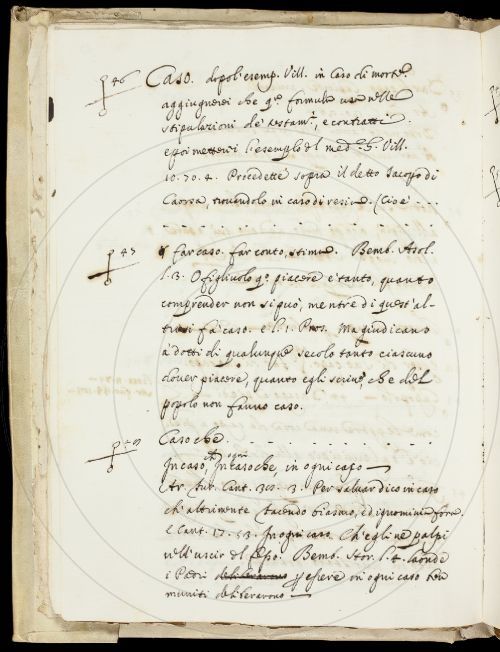 46 Caso. dopo li esemp. Vill. in caso di morte.
aggiugnerei che q.o formule usa nelle
stipulazioni de' testam.ti, e contratti.
e poi metterei l'esemplo del med.o G. Vill.
10. 70. 4. Procedette sopra il detto Iacopo di
Caorsa, trovandolo in caso di resia. (Cioè ...
47 far caso. far conto, stima. Bemb. Asol.
l. 3. O figliuolo q.o piacere è tanto, quanto
comprender non si può, mentre di quest'al-
trui fa caso. e l. 1. Pros. Ma giudicano
a' dotti di qualunque secolo tanto ciascuno
dover piacere, quanto egli scrive, che del
popolo non fanno caso.
Caso che.
In caso, In caso che, in ogni caso
Ar. fur. Cant. 3. Per salvar dico in caso
ch'altrimente facendo biasmo, ed ignominia
e Cant. 17. 53. In ogni caso. Ch'egli ne palpi
nell'uscio del Bemb. Stor. l. 4. laonde
i Padri deliberarono essere in ogni caso
muniti deliberarono